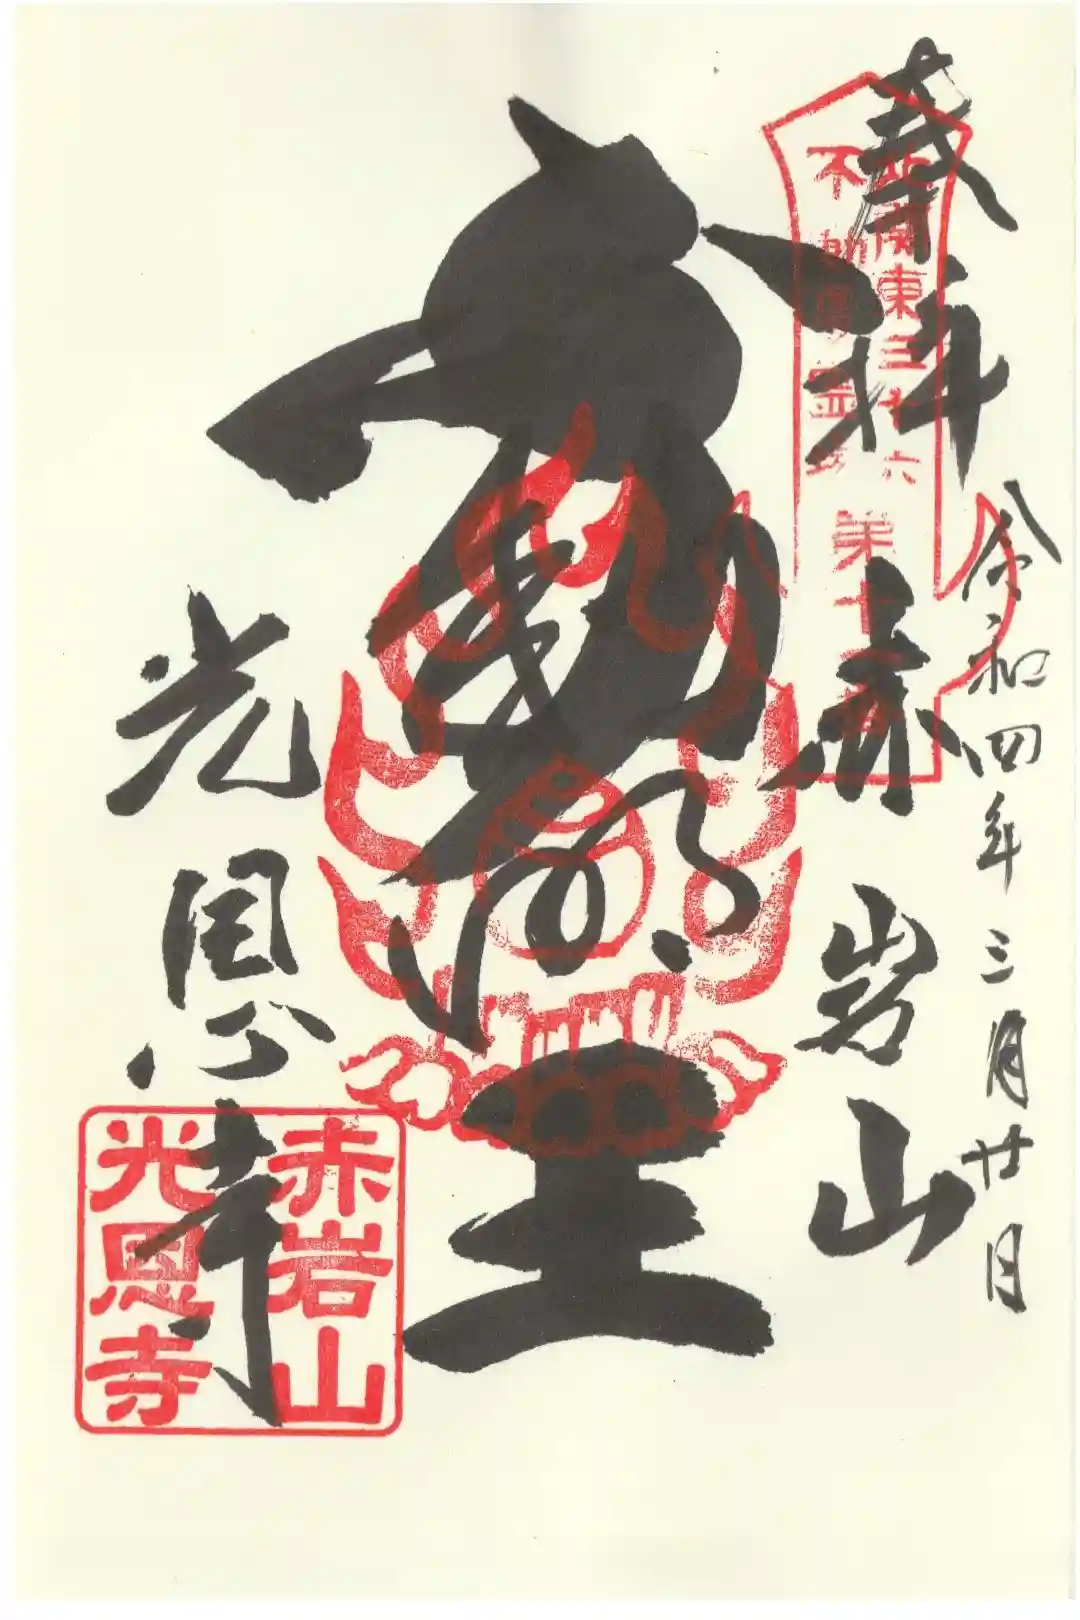 奉拝
北関東三十六
不動尊霊場
第十
令和四年三月廿日
赤岩山
不動明王
光恩寺
赤岩山
光恩寺